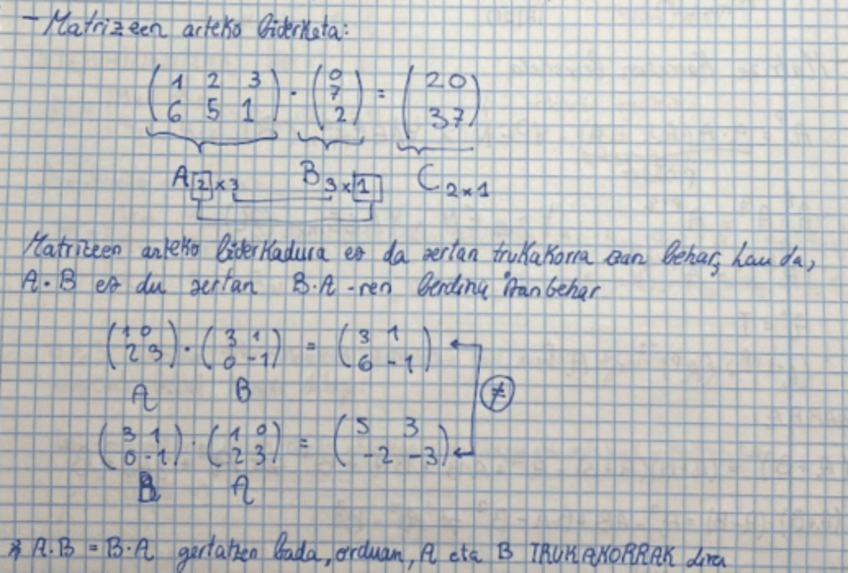 - Matrizeen arteko biderketa:
( 1 2 3 ) · ( 0 ) = ( 20 )
( 6 5 1 ) ( 7 ) ( 37 )
( 2 )
A 2 x 3 B 3 x 1 C 2 x 1
Matrizeen arteko biderkadura ez da zertan trukakorra izan behar, hau da,
A · B ez du zertan B·A -ren berdina izan behar
( 1 0 ) · ( 3 1 ) = ( 3 1 )
( 2 3 ) ( 0 -1 ) ( 6 -1 )
A B ≠
( 3 1 ) · ( 1 0 ) = ( 5 3 )
( 0 -1 ) ( 2 3 ) ( -2 -3 )
B A
* A·B = B·A gertatzen bada, orduan, A eta B TRUKAKORRAK dira